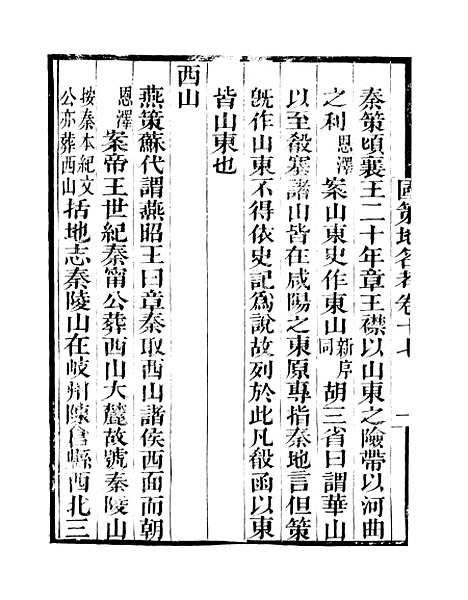 國策地名考卷十七 一
秦策頃襄王二十年章王襟以山東之險帶以河曲
之利恩澤案山東史作東山新序同胡三省曰謂華山
以至殽塞諸山皆在咸陽之東原專指秦地言但策
旣作山東不得依史記爲說故列於此凡殽函以東
皆山東也
西山
燕策蘇代謂燕昭王曰章秦取西山諸侯西面而朝
恩澤案帝王世紀秦甯公葬西山大麓故號秦陵山
按秦本紀文公亦葬西山括地志秦陵山在岐州陳倉縣西北三